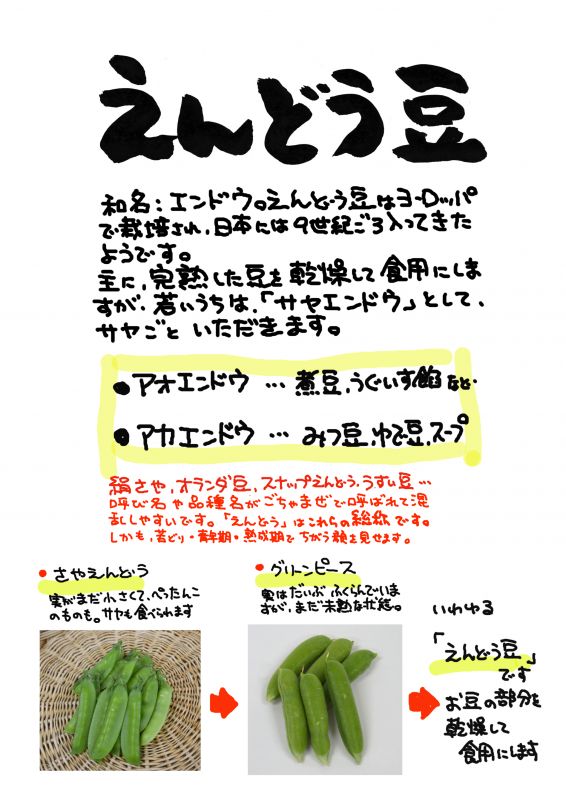 えんどう豆
和名：エンドウ。えんどう豆はヨーロッパ
で栽培され、日本には9世紀ごろ入ってきた
ようです。
主に、完熟した豆を乾燥して食用にしま
すが、若いうちは、「サヤエンドウ」として、
サヤごと いただきます。
●アオエンドウ … 煮豆、うぐいす餡など
●アカエンドウ … みつ豆、ゆで豆、スープ
絹さや、オランダ豆、スナップえんどう、うすい豆…
呼び名や品種名がごちゃまぜで呼ばれて混
乱しやすいです。「えんどう」はこれらの総称です。
しかも、若どり・青年期・熟成期でちがう顔を見せます。
●さやえんどう
実がまだ小さくて、ぺったんこ
のものも。サヤも食べられます
●グリーンピース
実はだいぶ ふくらんでいま
すが、まだ未熟な状態。
いわゆる
「えんどう豆」
です
お豆の部分を
乾燥して
食用にします